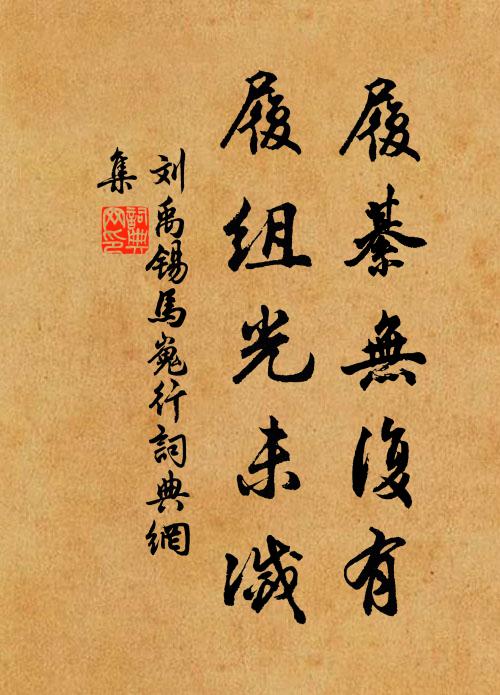 履綦無復有
履組光未滅
刘禹锡馬嵬行詞典網
集
詞典
网印